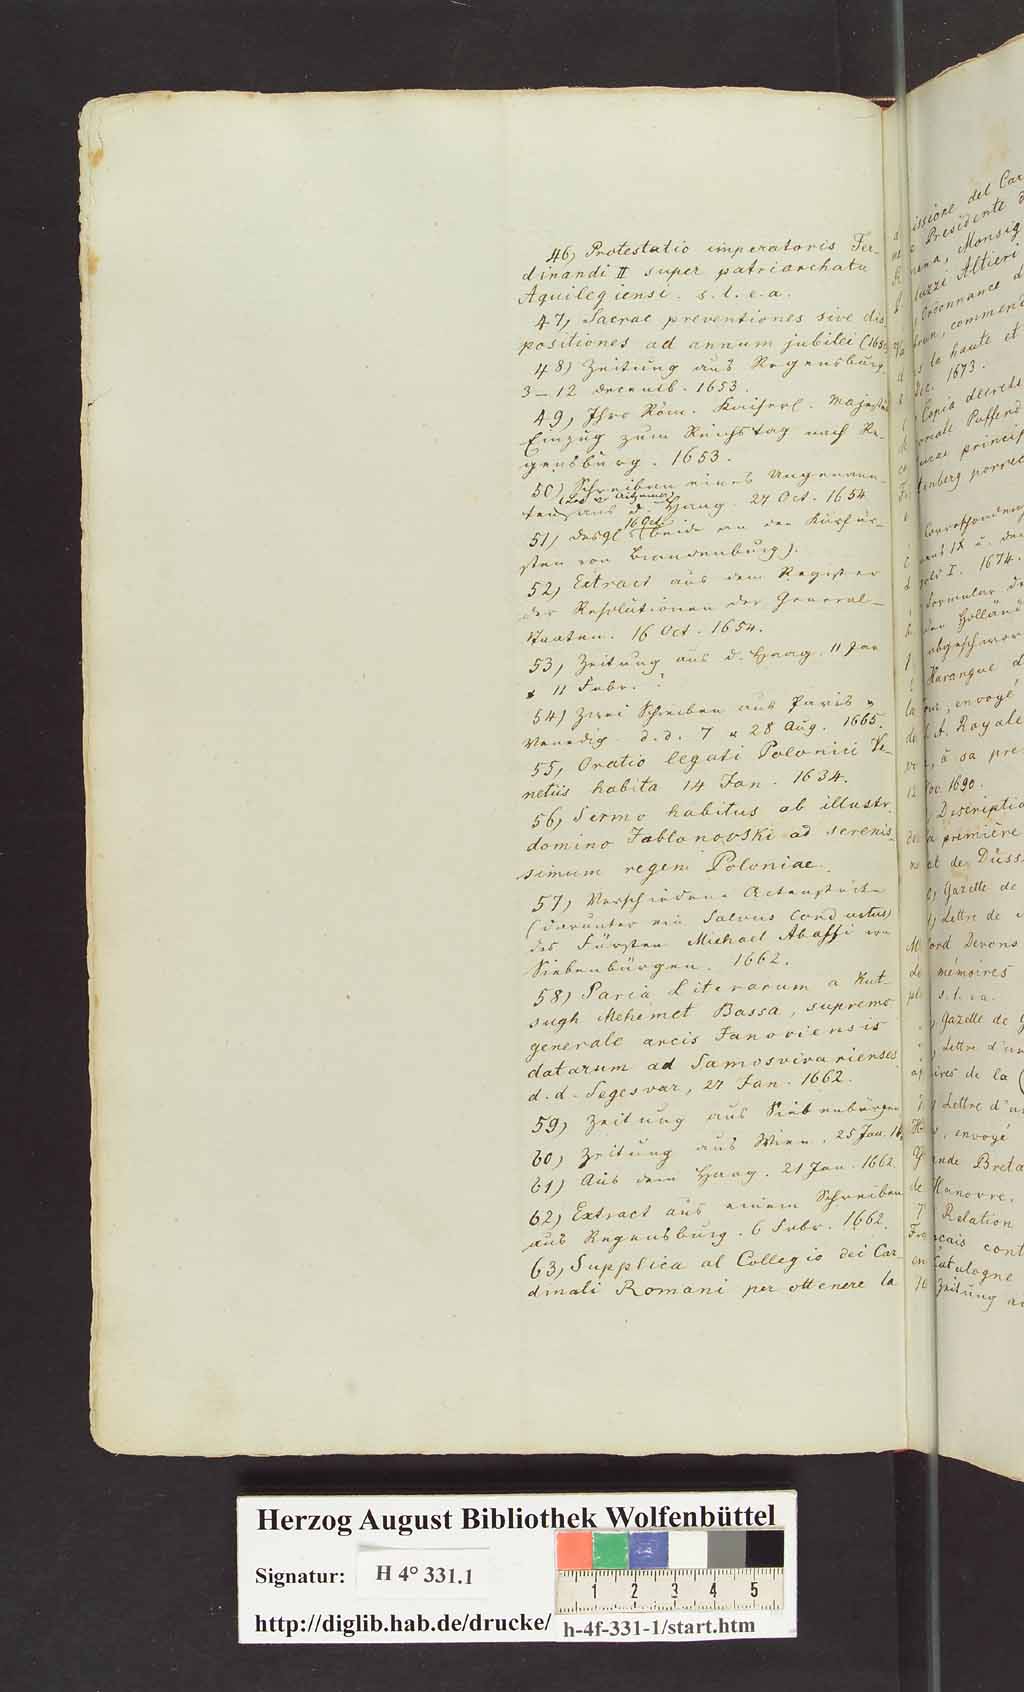 46) Protestatio imperatoris Fer-
dinandi II super patriarchatu
Aquilegiensi. s. l. e. a.
47) Sacrae preventiones sive dis
positiones ad annum jubilei (165
48) Zeitung aus Regensburg
3–12 Decemb. 1653.
49) Ihro Röm. Kaiserl. Majestät
Einzug zum Reichstag nach Re-
gensburg. 1653.
50) Schreiben eines Ungenann-
ten aus d. Haag. 27 Oct. 1654
51) desgl. 16 Oct. (beide an den Kurfür-
sten von Brandenburg).
52) Extract aus dem Register
der Resolutionen der General-
Staaten. 16 Oct. 1654.
53) Zeitung aus d. Haag. 11 Jan
& 11 Febr. ?
54) Zwei Schreiben aus Paris u
Venedig d. d. 7 u 28 Aug. 1665.
55) Oratio legati Polonici Ve-
netiis habita 14 Jan. 1634.
56) Sermo habitus ab illustr.
domino Jablonovski ad serenis-
simum regem Poloniae.
57) Verschiedene Actenstücke
(darunter ein Salvus Conductus)
des Fürsten Michael Abaffi von
Siebenbürgen. 1662.
58) Paria Literarum a Kut-
sugh Mehemet Bassa, supremo
generale arcis Janoviensis
datarum ad Samosvivarienses
d. d. Segesvar, 27 Jan. 1662.
59) Zeitung aus Siebenbürgen
60) Zeitung aus Wien. 25 Jan. 16
61) Aus dem Haag. 21 Jan. 1662.
62) Extract aus einem Schreiben
aus Regensburg. 6 Febr. 1662.
63) Supplica al Collegio dei Car-
dinali Romani per ottenere la
issione del Car
Presidente d
Monsig
Altieri
Ordonnance d
comment
la haute et
1673.
Copia decreti
princip
Correspondenz
1674.
Formular de
Holländ
abgeschwor
Harangue d
envoyé
A. Royale
à sa pre
1690.
Descriptio
première
et de Düss
Gazette de
Lettre de
ord Devons
mémoires
s. l. e a.
Gazette de
Lettre d'un
ires de la
Lettre d'u
envoyé
ande Breta
Hanovre.
Relation
cais cont
Catalogne
Zeitung
Herzog August Bibliothek Wolfenbüttel
Signatur: H 4° 331.1
1 2 3 4 5
http://diglib.hab.de/drucke/ h-4f-331-1/start.htm